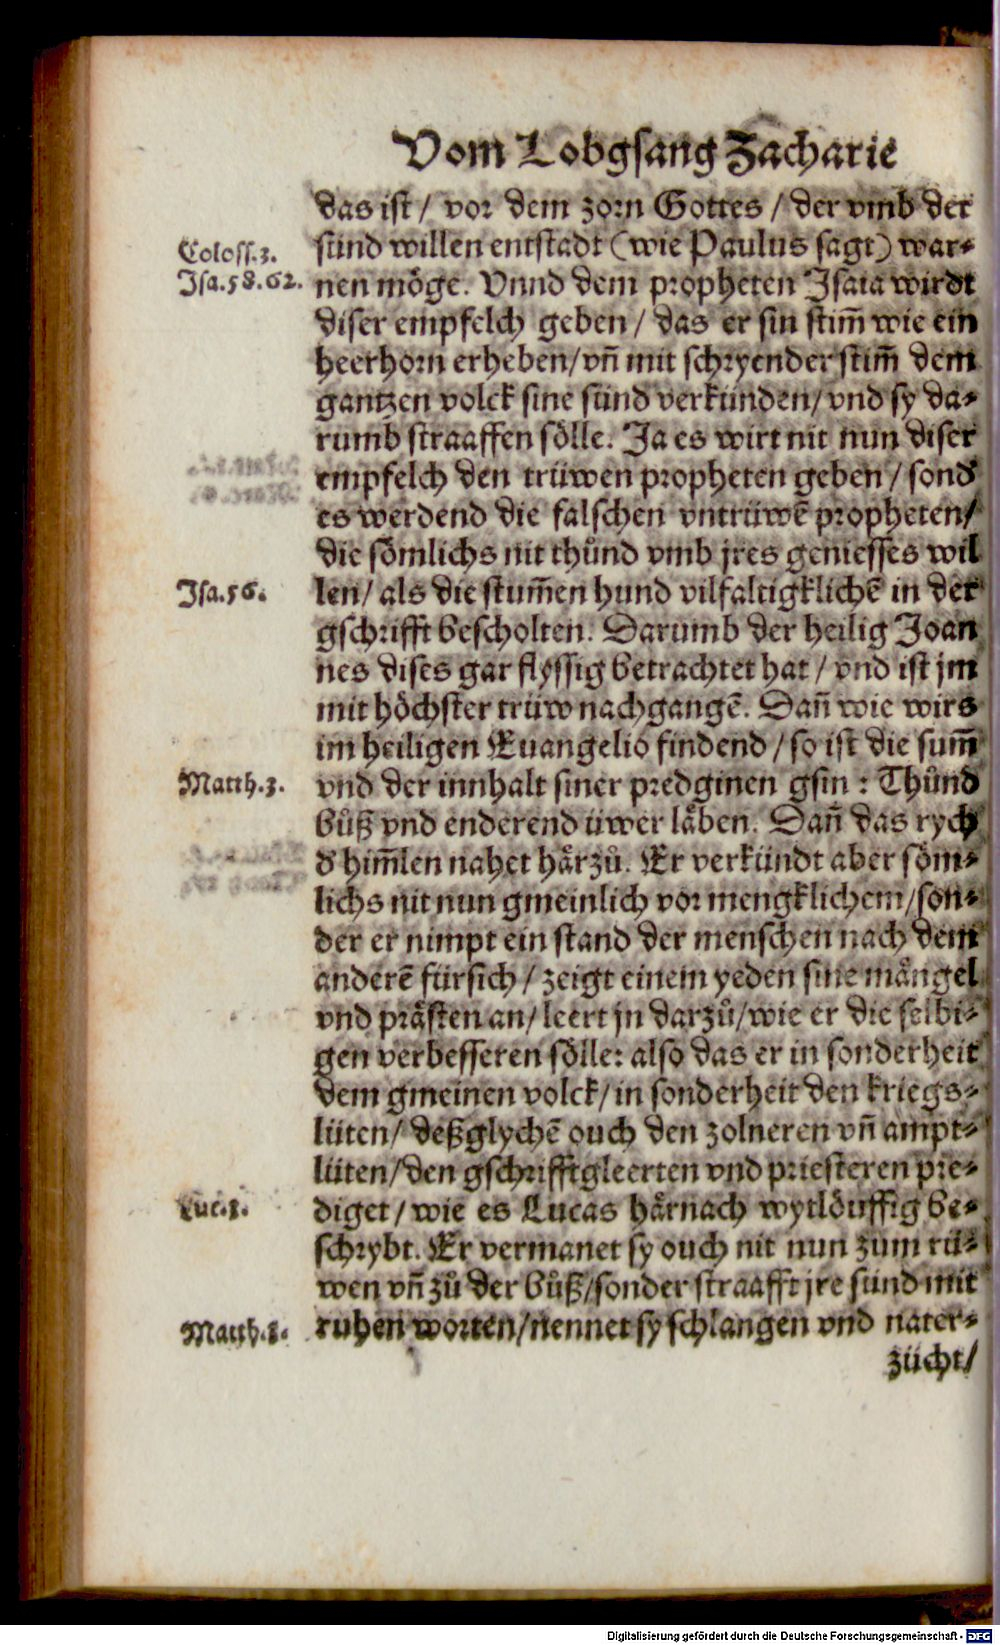 Vom Lobgsang Zacharie
das ist / vor dem zorn Gottes / der vmb der
Coloss.3.
sünd willen entstadt (wie Paulus sagt) war⸗
Jsa.58.62.
nen möge. Vnnd dem propheten Jsaia wirdt
diser empfelch geben / das er sin stim̃ wie ein
heerhorn erheben / vñ mit schryender stim̃ dem
gantzen volck sine sünd verkünden / vnd sy da⸗
rumb straaffen sölle. Ja es wirt nit nun diser
empfelch den trüwen propheten geben / sond̕
es werdend die falschen vntrüwẽ propheten /
die sömlichs nit thůnd vmb jres geniesses wil
Jsa.56.
len / als die stum̃en hund vilfaltigklichẽ in der
gschrifft bescholten. Darumb der heilig Joan
nes dises gar flyssig betrachtet hat / vnd ist jm
mit höchster trüw nachgangẽ. Dañ wie wirs
im heiligen Euangelio findend / so ist die sum̃
Matth.3.
vnd der innhalt siner predginen gsin : Thůnd
bůß vnd enderend üwer läben. Dañ das rych
d̕ him̃len nahet härzů. Er verkündt aber söm⸗
lichs nit nun gmeinlich vor mengklichem / son⸗
der er nimpt ein stand der menschen nach dem
anderẽ fürsich / zeigt einem yeden sine mängel
vnd prästen an / leert jn darzů / wie er die selbi⸗
gen verbesseren sölle: also das er in sonderheit
dem gmeinen volck / in sonderheit den kriegs⸗
lüten / deßglychẽ ouch den zolneren vñ ampt⸗
lüten / den gschrifftgleerten vnd priesteren pre⸗
Luc.3.
diget / wie es Lucas härnach wytlöuffig be⸗
schrybt. Er vermanet sy ouch nit nun zum rü⸗
wen vñ zů der bůß / sonder straafft jre sünd mit
Matth.3.
ruhen worten / nennet sy schlangen vnd nater⸗
zücht /
Digitalisierung gefördert durch die Deutsche Forschungsgemeinschaft - DFG